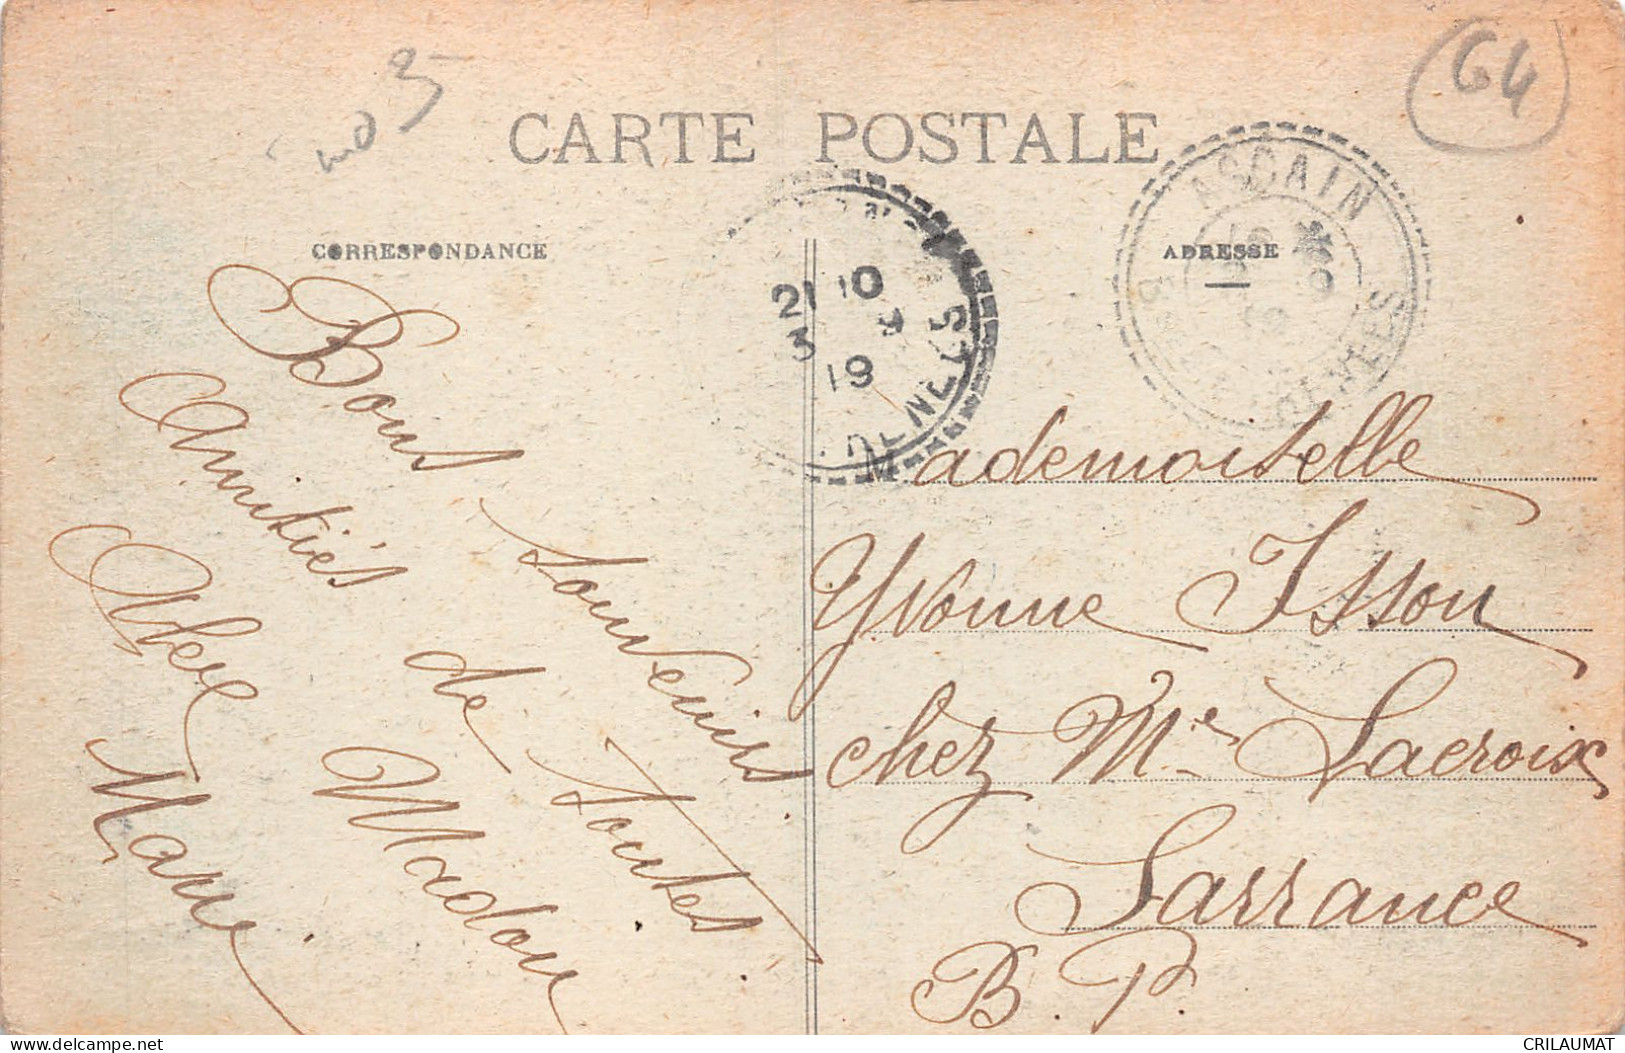 64
CARTE POSTALE
CORRESPONDANCE
ADRESSE
ASCAIN
21 10
3
19
Bons souvenirs
Amitiés de toutes
Madou
Marie
Mademoiselle
Yvonne Isson
chez Mr Lacroix
Sarrance
B. P.
CRILAUMAT